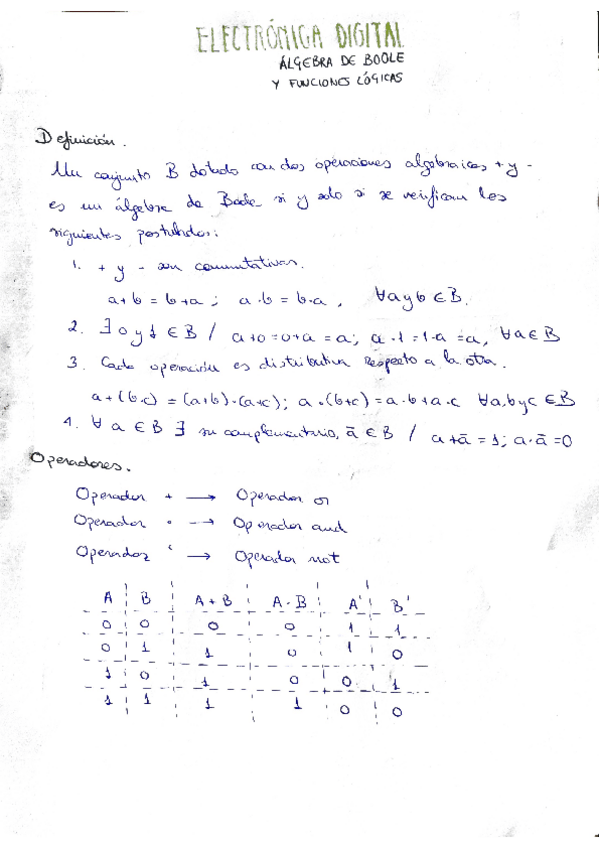 ELECTRÓNICA DIGITAL
ÁLGEBRA DE BOOLE
Y FUNCIONES LÓGICAS
Definición.
Un conjunto B dotado con dos operaciones algebraicas + y ·
es un álgebra de Boole si y solo si se verifican los
siguientes postulados:
1. + y · son conmutativas.
a+b = b+a ; a·b = b·a , ∀a y b ∈ B.
2. ∃ 0 y 1 ∈ B / a+0=0+a = a; a·1=1·a =a, ∀a∈B
3. Cada operación es distributiva respecto a la otra.
a+(b·c) = (a+b)·(a+c); a·(b+c)=a·b+a·c ∀a,b y c ∈B
4. ∀ a ∈ B ∃ su complementario, ā ∈ B / a+ā = 1; a·ā =0
Operadores.
Operador + → Operador or
Operador · → Operador and
Operador ' → Operador not
A B A+B A·B A' B'
0 0 0 0 1 1
0 1 1 0 1 0
1 0 1 0 0 1
1 1 1 1 0 0